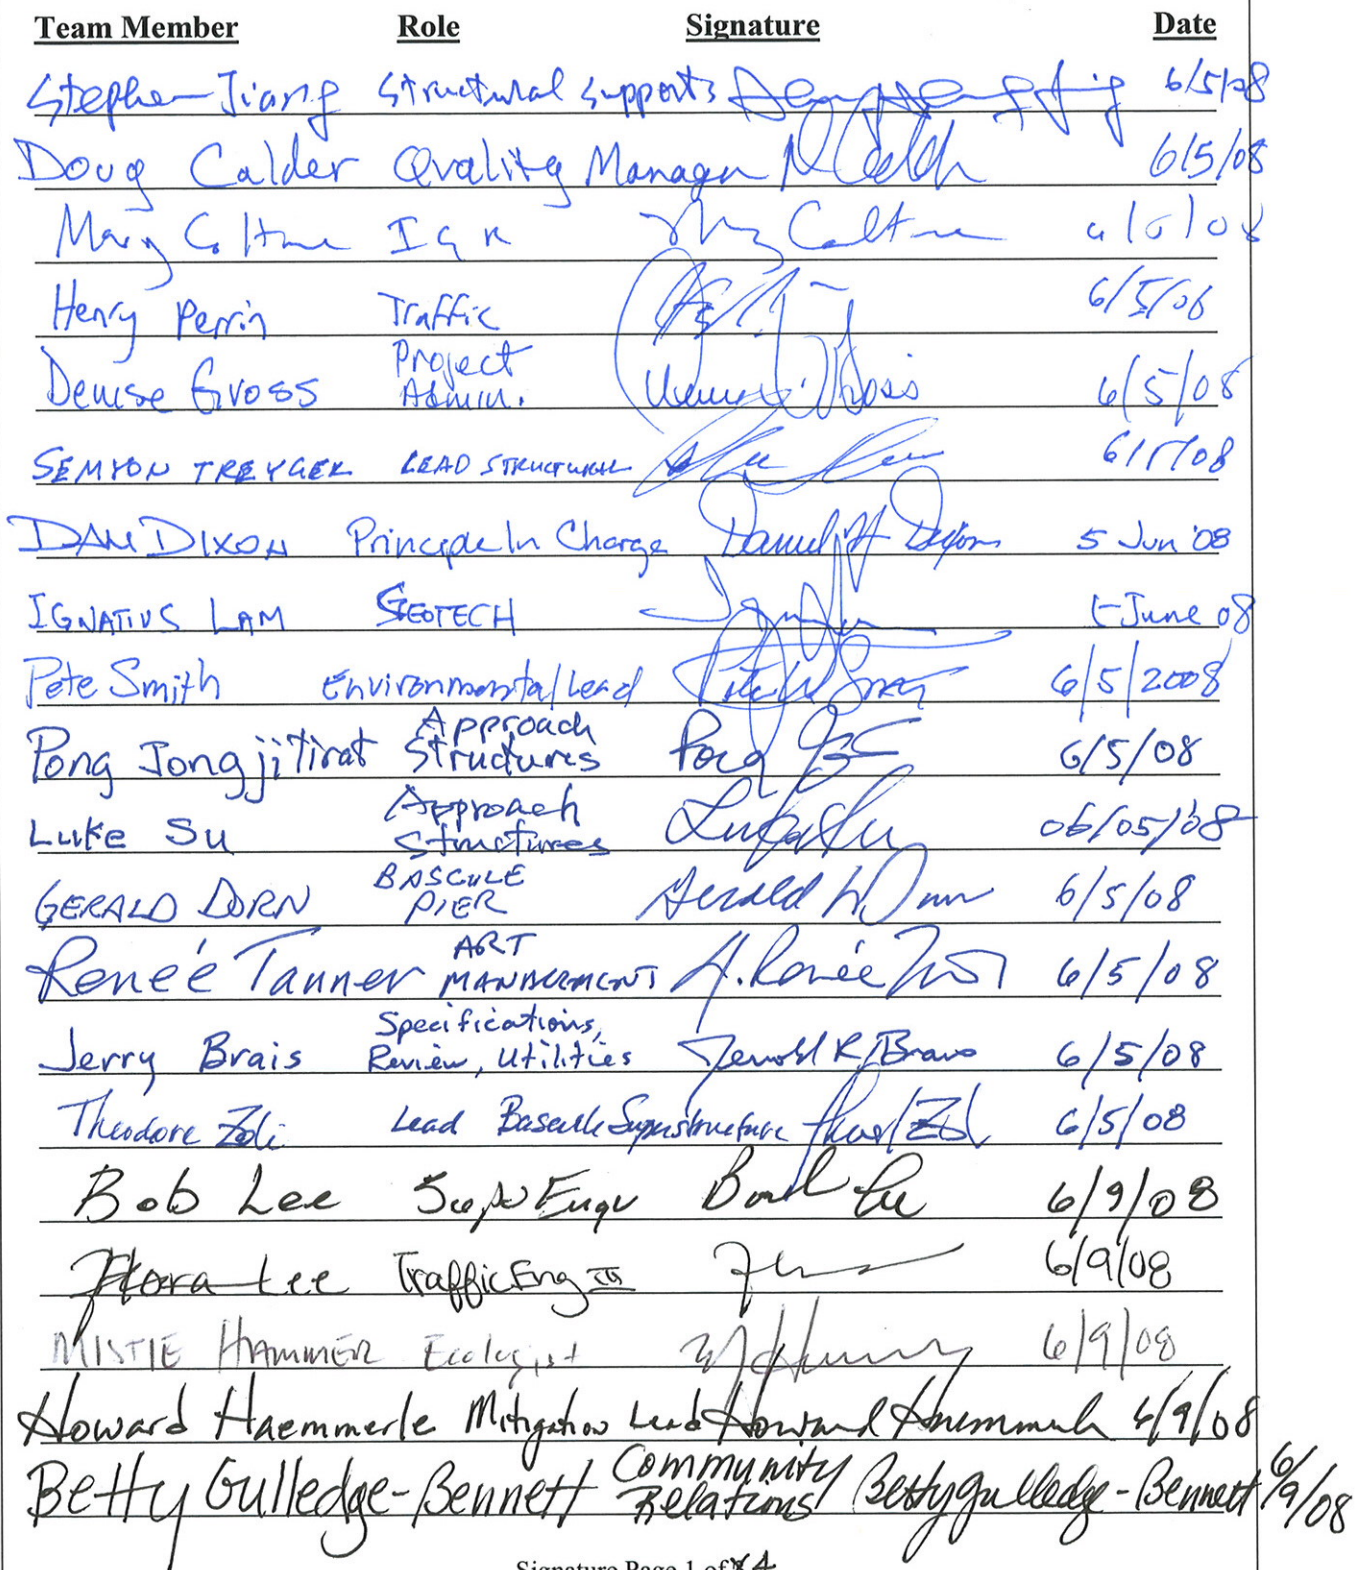 Team Member Role Signature Date
Stephen Jiang Structural Supports 6/5/08
Doug Calder Quality Manager 6/5/08
Mary Coltrane
Henry Perrin Traffic 6/5/08
Project
Denise Gross Admin. 6/5/08
SEMYON TREYGER LEAD STRUCTURAL 6/5/08
DAN DIXON Principle In Charge Daniel H Dixon 5 Jun '08
IGNATIUS LAM GEOTECH 5 June 08
Pete Smith Environmental Lead 6/5/2008
Approach
Pong Jongjitirat Structures Pong 6/5/08
Approach
Luke Su Structures Luke Su 06/05/08
BASCULE
GERALD DORN PIER Gerald W Dorn 6/5/08
ART
Reneé Tanner MANAGEMENT H. Renée 6/5/08
Specifications,
Jerry Brais Review, Utilities Jerrold R. Brais 6/5/08
Theodore Zoli Lead Bascule Superstructure 6/5/08
Bob Lee 6/9/08
Flora Lee Traffic Eng III 6/9/08
MISTIE HAMMER Ecologist 6/9/08
Howard Haemmerle Mitigation Lead Howard Haemmerle 6/9/08
Betty Gulledge-Bennett Community Relations Betty Gulledge-Bennett 6/9/08
Signature Page 1 of 4